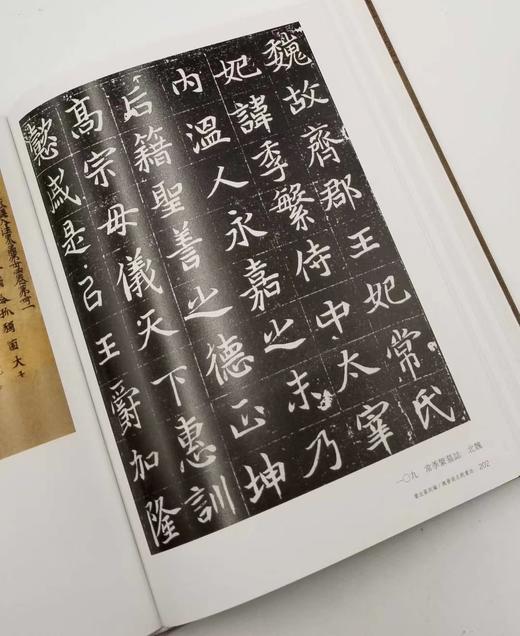 魏故齊郡王妃常氏
妃諱季繁侍中太宰
內溫人永嘉之末乃
后籍聖善之德正坤
高宗母儀天下惠訓
懿戚是以王爵加隆
一〇九 常季繁墓誌 北魏
書法篆刻編/魏晉南北朝書法 202